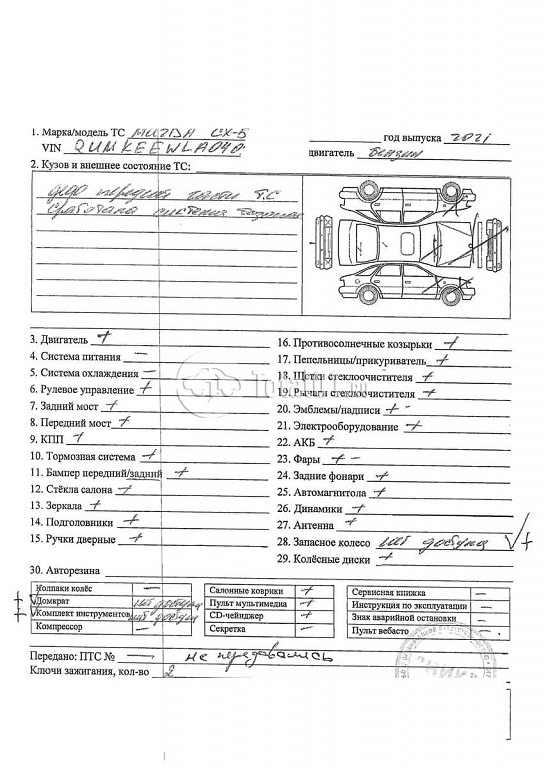 1. Марка/модель ТС MAZDA CX-5 год выпуска 2021
VIN двигатель бензин
2. Кузов и внешнее состояние ТС:
передняя части Т.С
Сработала система
3. Двигатель +
4. Система питания —
5. Система охлаждения —
6. Рулевое управление +
7. Задний мост +
8. Передний мост +
9. КПП +
10. Тормозная система +
11. Бампер передний/задний +
12. Стёкла салона +
13. Зеркала +
14. Подголовники +
15. Ручки дверные +
16. Противосолнечные козырьки +
17. Пепельницы/прикуриватель +
18. Щетки стеклоочистителя +
19. Рычаги стеклоочистителя +
20. Эмблемы/надписи + -
21. Электрооборудование +
22. АКБ +
23. Фары + -
24. Задние фонари +
25. Автомагнитола +
26. Динамики +
27. Антенна +
28. Запасное колесо √+
29. Колёсные диски +
30. Авторезина
Колпаки колёс —
Домкрат
Комплект инструментов
Компрессор —
Салонные коврики +
Пульт мультимедиа +
CD-чейнджер +
Секретка —
Сервисная книжка —
Инструкция по эксплуатации —
Знак аварийной остановки —
Пульт вебасто —
Передано: ПТС № — не передавались
Ключи зажигания, кол-во 2